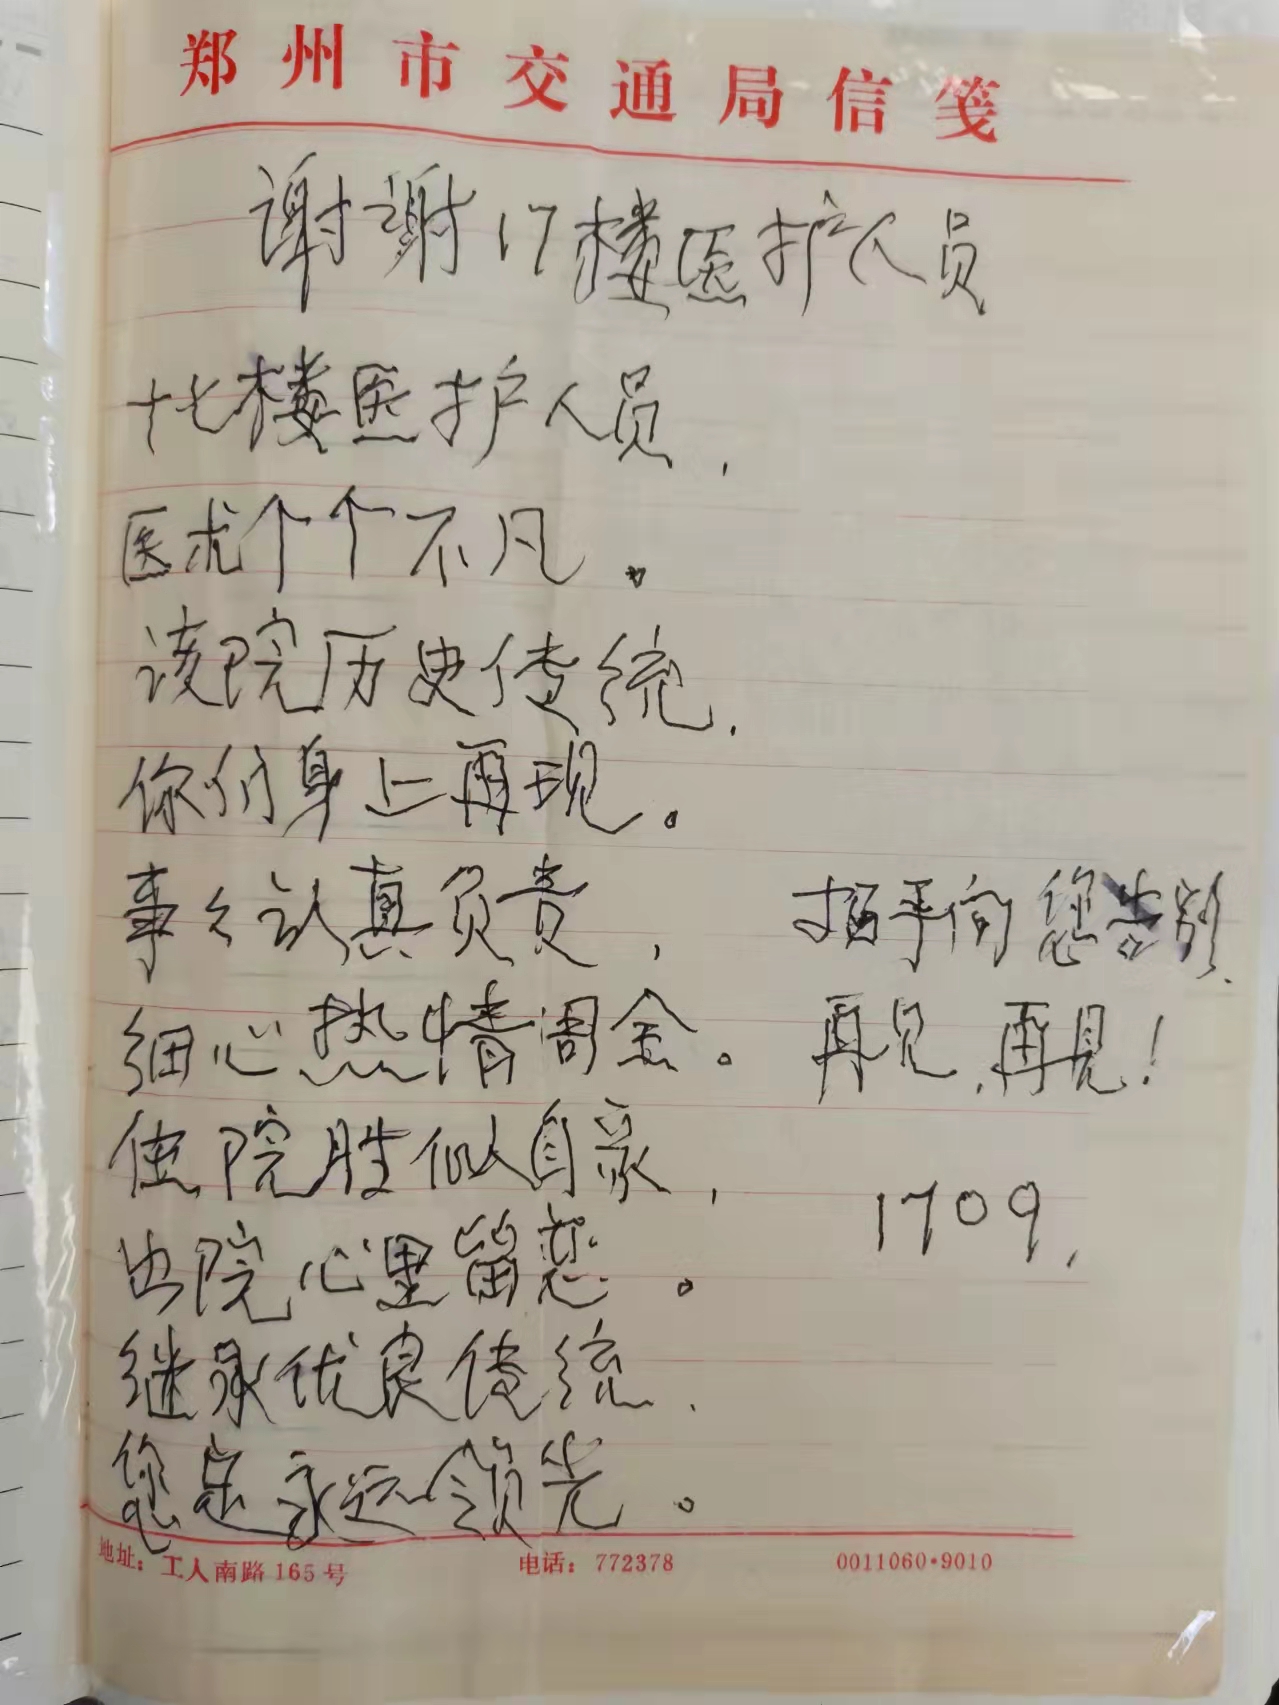 郑州市交通局信笺
谢谢17楼医护人员
十七楼医护人员,
医术个个不凡。
该院历史传统,
你们身上再现。
事々认真负责,
细心热情周全。
住院胜似自家,
出院心里留恋。
继承优良传统,
您定永远领先。
招手向您告别,
再见,再见!
1709,
地址:工人南路165号
电话:772378
0011060·9010